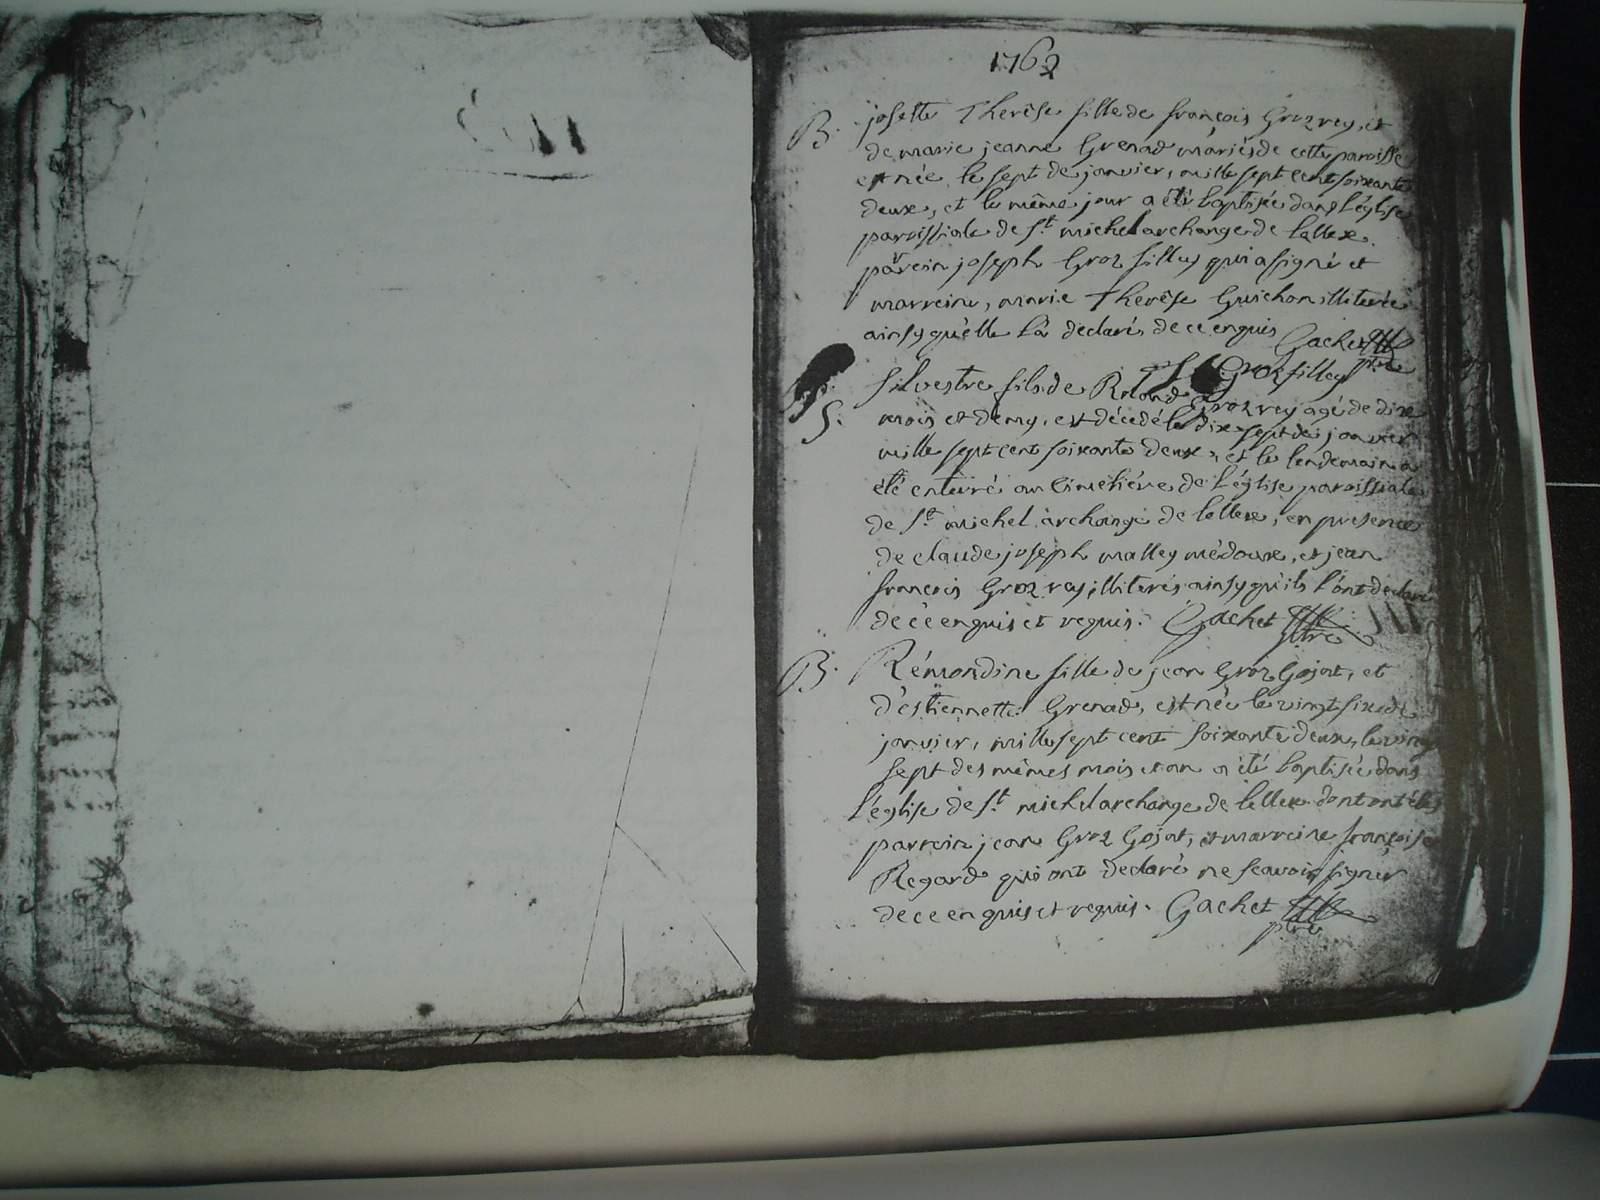 1762
B. josette Therêse fille de françois Grozrey, et
de marie jeanne Grenad mariés de cette paroisse
est née le sept de janvier, mille sept cent soixante
deux, et le même jour a été baptisée dans l'église
paroissiale de St michel archange de lellex.
parrein joseph Groz filley qui a signé et
marreine, marie Therêse Guichon illiterée
ainsy quelle l'a declaré de ce enquis Gachet
ptre
J Groz filley
S. Silvestre fils de Roland Grozrey agé de dix
mois et demy, est décedé le dix sept de janvier
mille sept cent soixante deux, et le lendemain a
été enterré au Cimetiére de l'église paroissiale
de St michel archange de lellex, en presence
de claude joseph mattey médoux, et jean
françois Grozrey, illiterés ainsy qu'ils l'ont declaré
de ce enquis et requis. Gachet
ptre
B. Rémondine fille de jean Groz Gojat, et
d'estiennette Grenad, est née le vingt six de
janvier, mille sept cent soixante deux, le vingt
sept des mêmes mois et an a été baptisée dans
l'église de St michel archange de lellex dont ont étés
parrein jean Groz Gojat, et marreine françoise
Regard qui ont declaré ne scavoir signer
de ce enquis et requis. Gachet
ptre